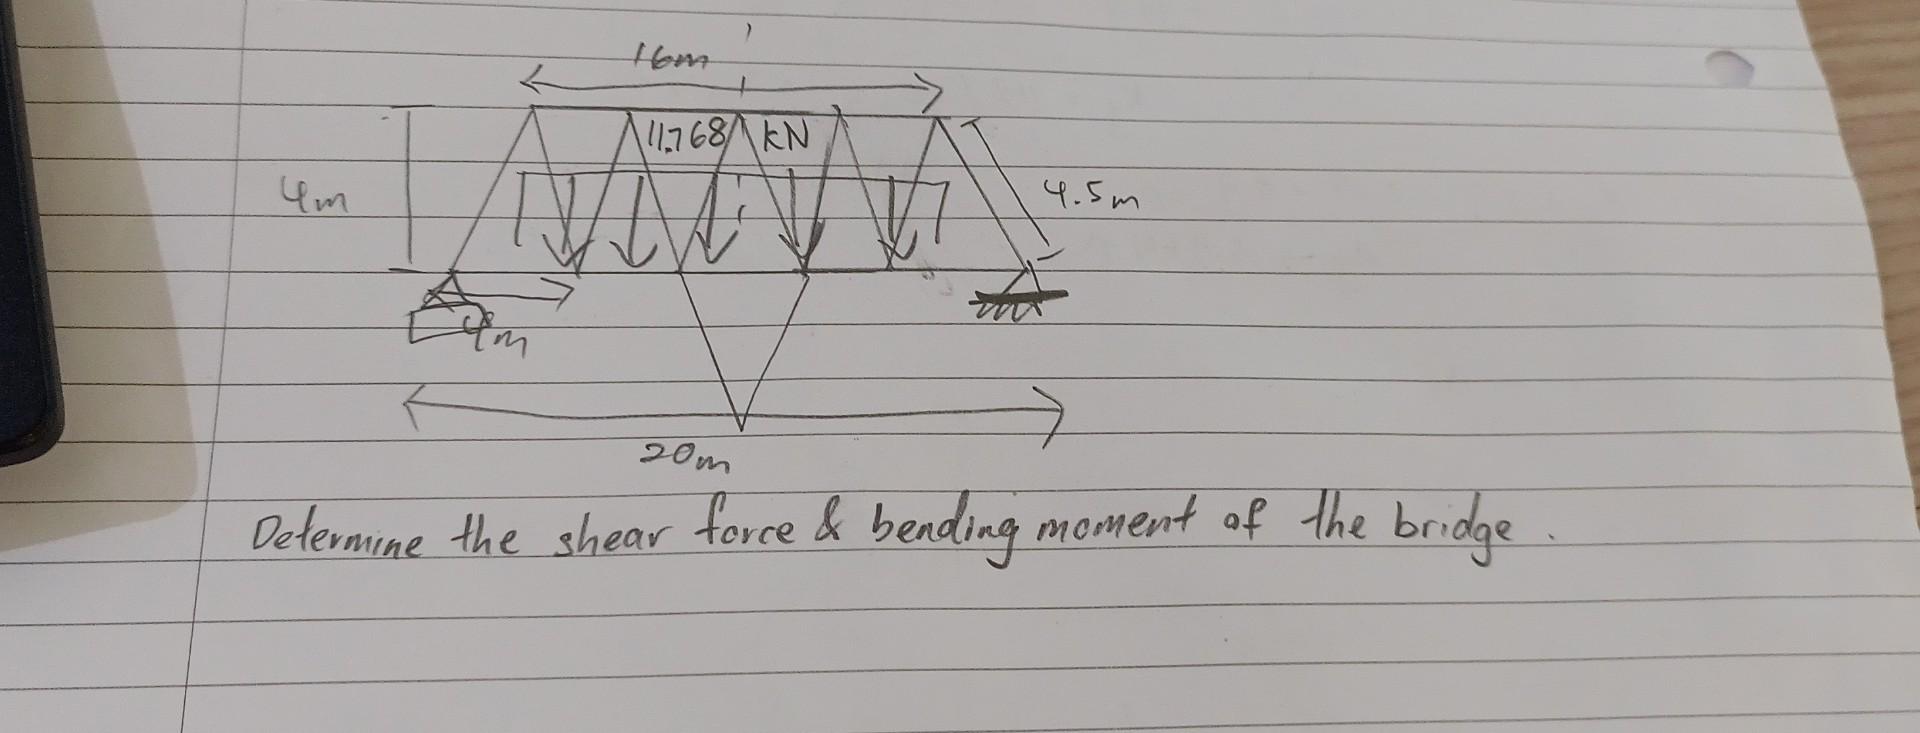 16m
11.768 kN
4m
4.5m
4m
20m
Determine the shear force & bending moment of the bridge.